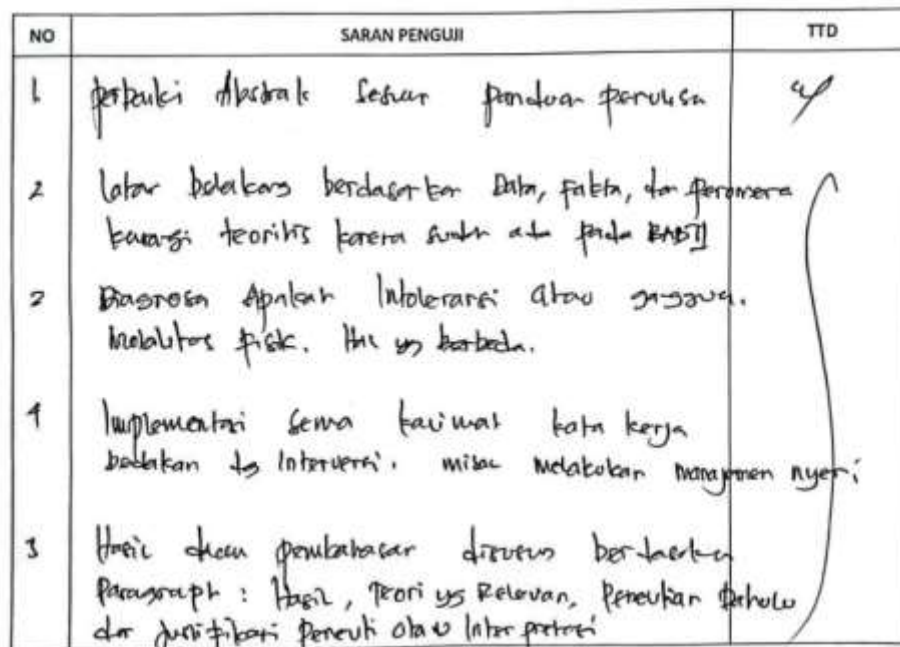 NO SARAN PENGUJI TTD
1 perbaiki Abstrak sesuai panduan penulisa
2 latar belakang berdasarkan Data, Fakta, dan fenomena
kurangi teoritis karena sudah ada pada BAB II
2 Diagnosa Apakah Intoleransi atau gangguan.
Mobilitas Fisik. Hal yg berbeda.
4 Implementasi semua kalimat kata kerja
bedakan dg Intervensi. misal melakukan manajemen nyeri
5 Hasil dan pembahasan disusun berdasarkan
Paragraph : Hasil, Teori yg Relevan, Penelitian Dahulu
dan Justifikasi Peneliti atau Interpretasi